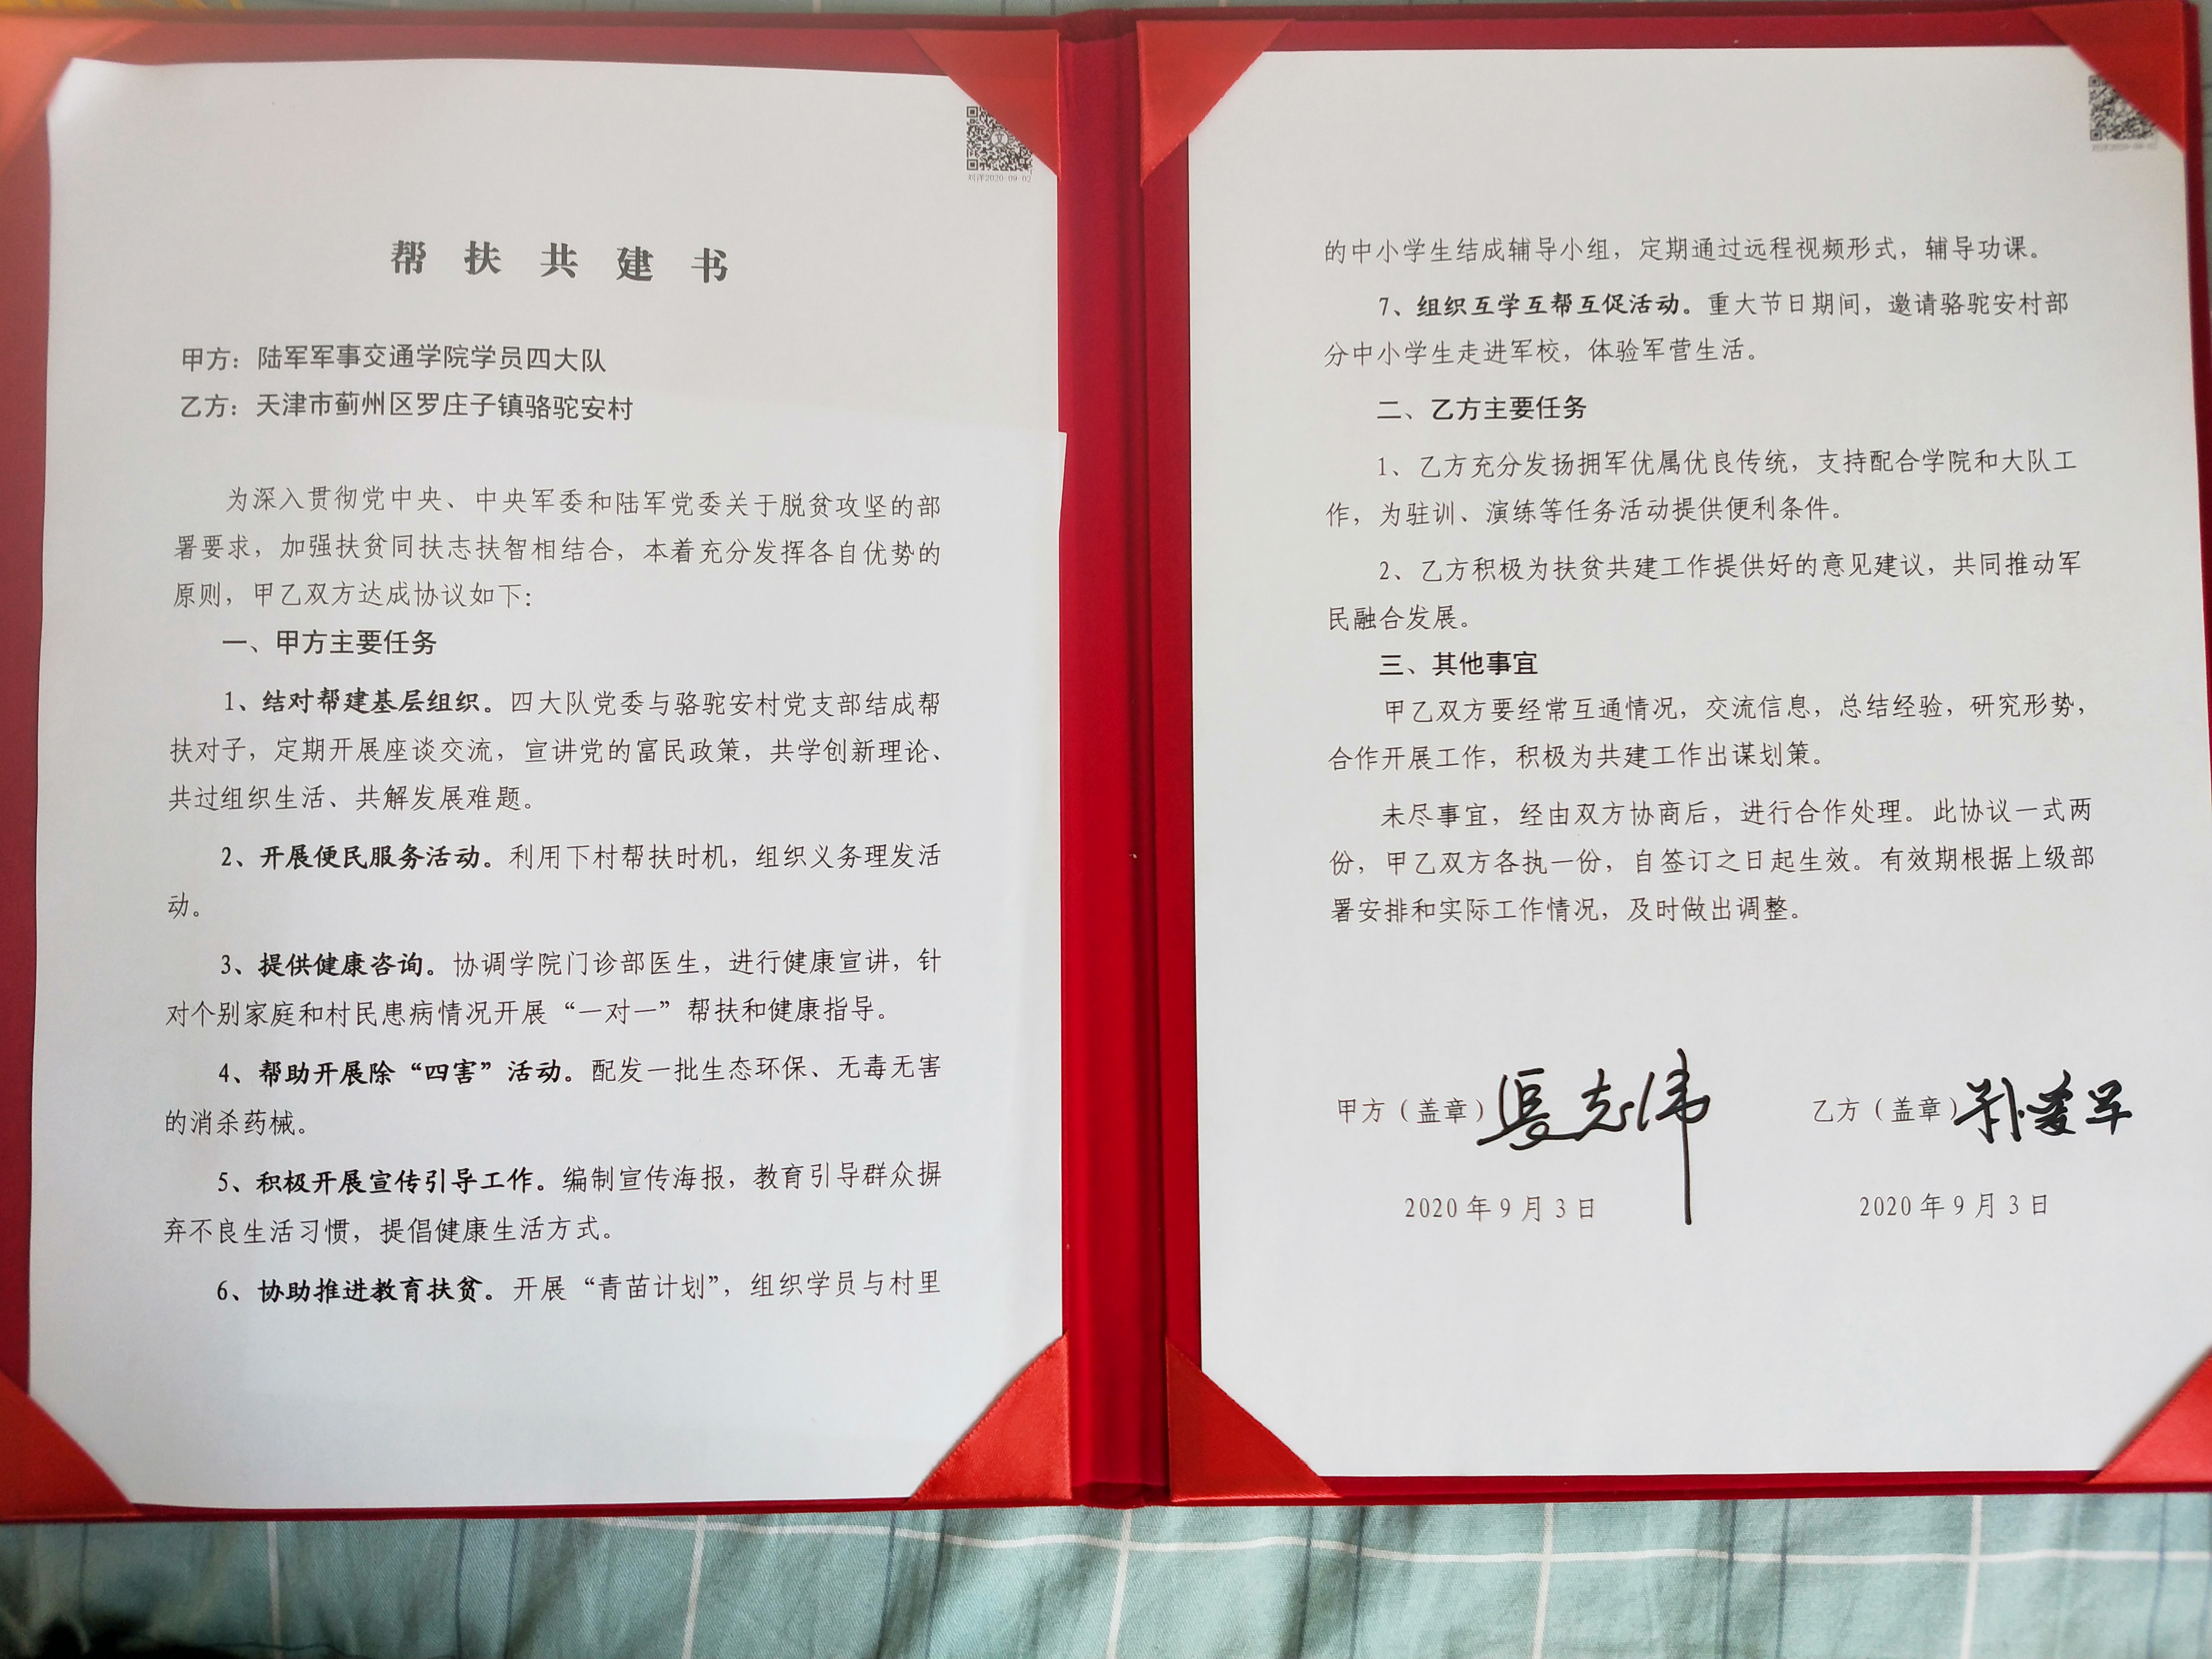 刘洋2020-09-02
帮扶共建书
甲方：陆军军事交通学院学员四大队
乙方：天津市蓟州区罗庄子镇骆驼安村
为深入贯彻党中央、中央军委和陆军党委关于脱贫攻坚的部
署要求，加强扶贫同扶志扶智相结合，本着充分发挥各自优势的
原则，甲乙双方达成协议如下：
一、甲方主要任务
1、结对帮建基层组织。四大队党委与骆驼安村党支部结成帮
扶对子，定期开展座谈交流，宣讲党的富民政策，共学创新理论、
共过组织生活、共解发展难题。
2、开展便民服务活动。利用下村帮扶时机，组织义务理发活
动。
3、提供健康咨询。协调学院门诊部医生，进行健康宣讲，针
对个别家庭和村民患病情况开展“一对一”帮扶和健康指导。
4、帮助开展除“四害”活动。配发一批生态环保、无毒无害
的消杀药械。
5、积极开展宣传引导工作。编制宣传海报，教育引导群众摒
弃不良生活习惯，提倡健康生活方式。
6、协助推进教育扶贫。开展“青苗计划”，组织学员与村里
刘洋2020-09-02
的中小学生结成辅导小组，定期通过远程视频形式，辅导功课。
7、组织互学互帮互促活动。重大节日期间，邀请骆驼安村部
分中小学生走进军校，体验军营生活。
二、乙方主要任务
1、乙方充分发扬拥军优属优良传统，支持配合学院和大队工
作，为驻训、演练等任务活动提供便利条件。
2、乙方积极为扶贫共建工作提供好的意见建议，共同推动军
民融合发展。
三、其他事宜
甲乙双方要经常互通情况，交流信息，总结经验，研究形势，
合作开展工作，积极为共建工作出谋划策。
未尽事宜，经由双方协商后，进行合作处理。此协议一式两
份，甲乙双方各执一份，自签订之日起生效。有效期根据上级部
署安排和实际工作情况，及时做出调整。
甲方（盖章） 乙方（盖章）
2020年9月3日 2020年9月3日